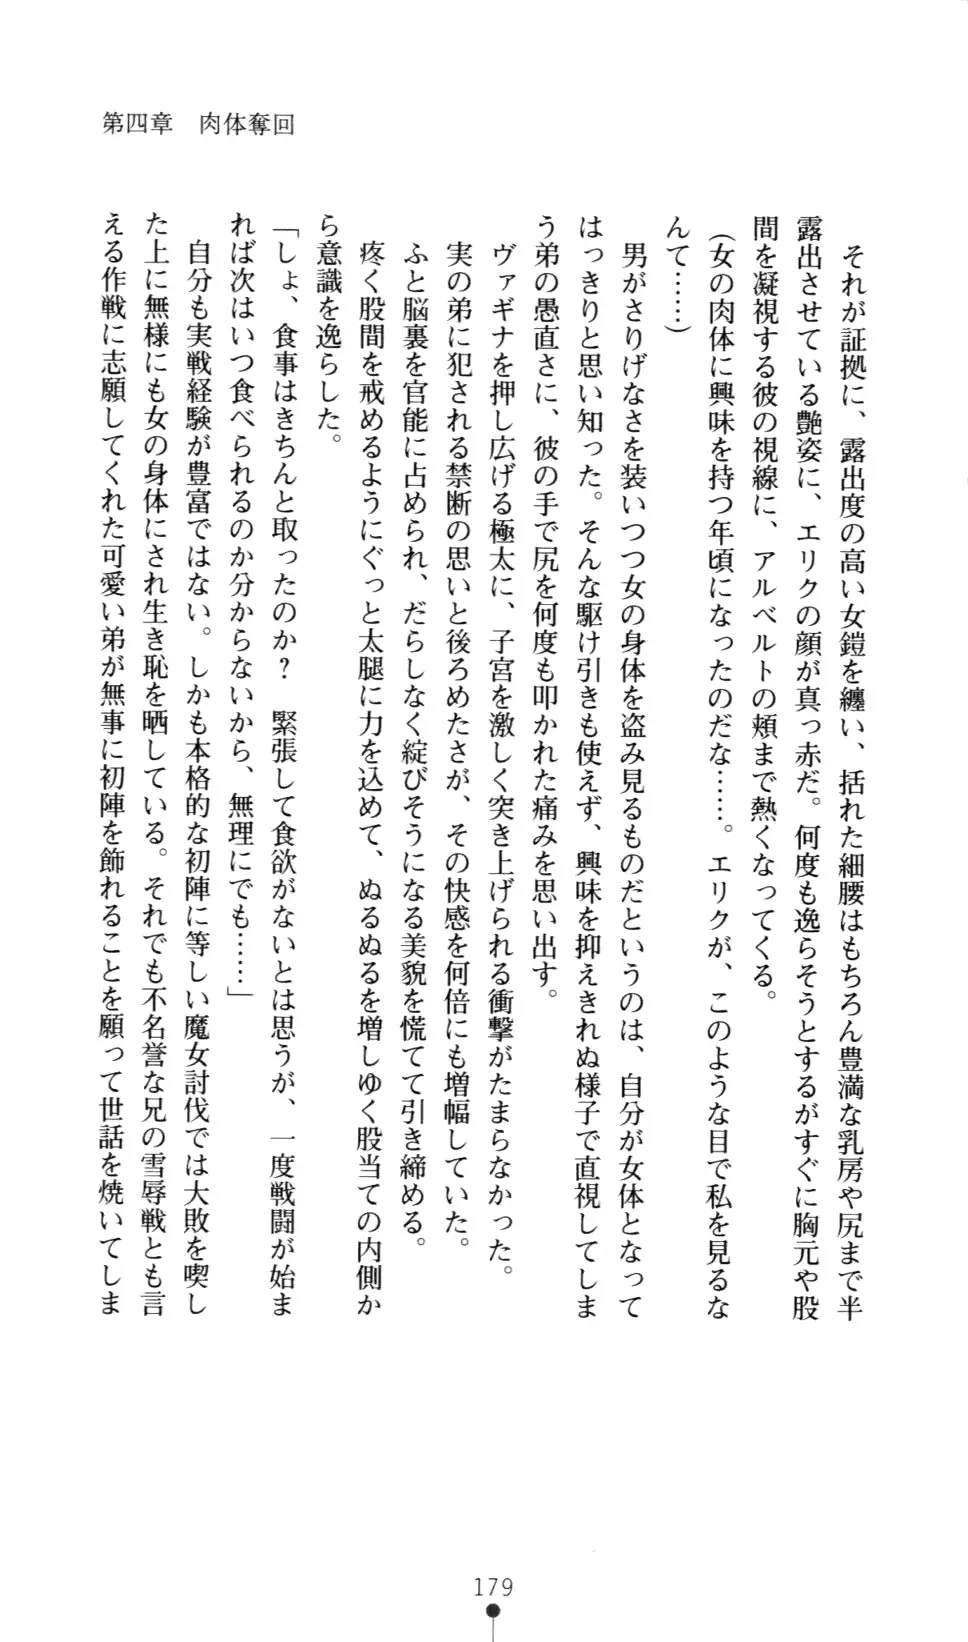 第四章　肉体奪回
それが証拠に、露出度の高い女鎧を纏い、括れた細腰はもちろん豊満な乳房や尻まで半
露出させている艶姿に、エリクの顔が真っ赤だ。何度も逸らそうとするがすぐに胸元や股
間を凝視する彼の視線に、アルベルトの頬まで熱くなってくる。
（女の肉体に興味を持つ年頃になったのだな……。エリクが、このような目で私を見るな
んて……）
男がさりげなさを装いつつ女の身体を盗み見るものだというのは、自分が女体となって
はっきりと思い知った。そんな駆け引きも使えず、興味を抑えきれぬ様子で直視してしま
う弟の愚直さに、彼の手で尻を何度も叩かれた痛みを思い出す。
ヴァギナを押し広げる極太に、子宮を激しく突き上げられる衝撃がたまらなかった。
実の弟に犯される禁断の思いと後ろめたさが、その快感を何倍にも増幅していた。
ふと脳裏を官能に占められ、だらしなく綻びそうになる美貌を慌てて引き締める。
疼く股間を戒めるようにぐっと太腿に力を込めて、ぬるぬるを増しゆく股当ての内側か
ら意識を逸らした。
「しょ、食事はきちんと取ったのか？　緊張して食欲がないとは思うが、一度戦闘が始ま
れば次はいつ食べられるのか分からないから、無理にでも……」
自分も実戦経験が豊富ではない。しかも本格的な初陣に等しい魔女討伐では大敗を喫し
た上に無様にも女の身体にされ生き恥を晒している。それでも不名誉な兄の雪辱戦とも言
える作戦に志願してくれた可愛い弟が無事に初陣を飾れることを願って世話を焼いてしま
179